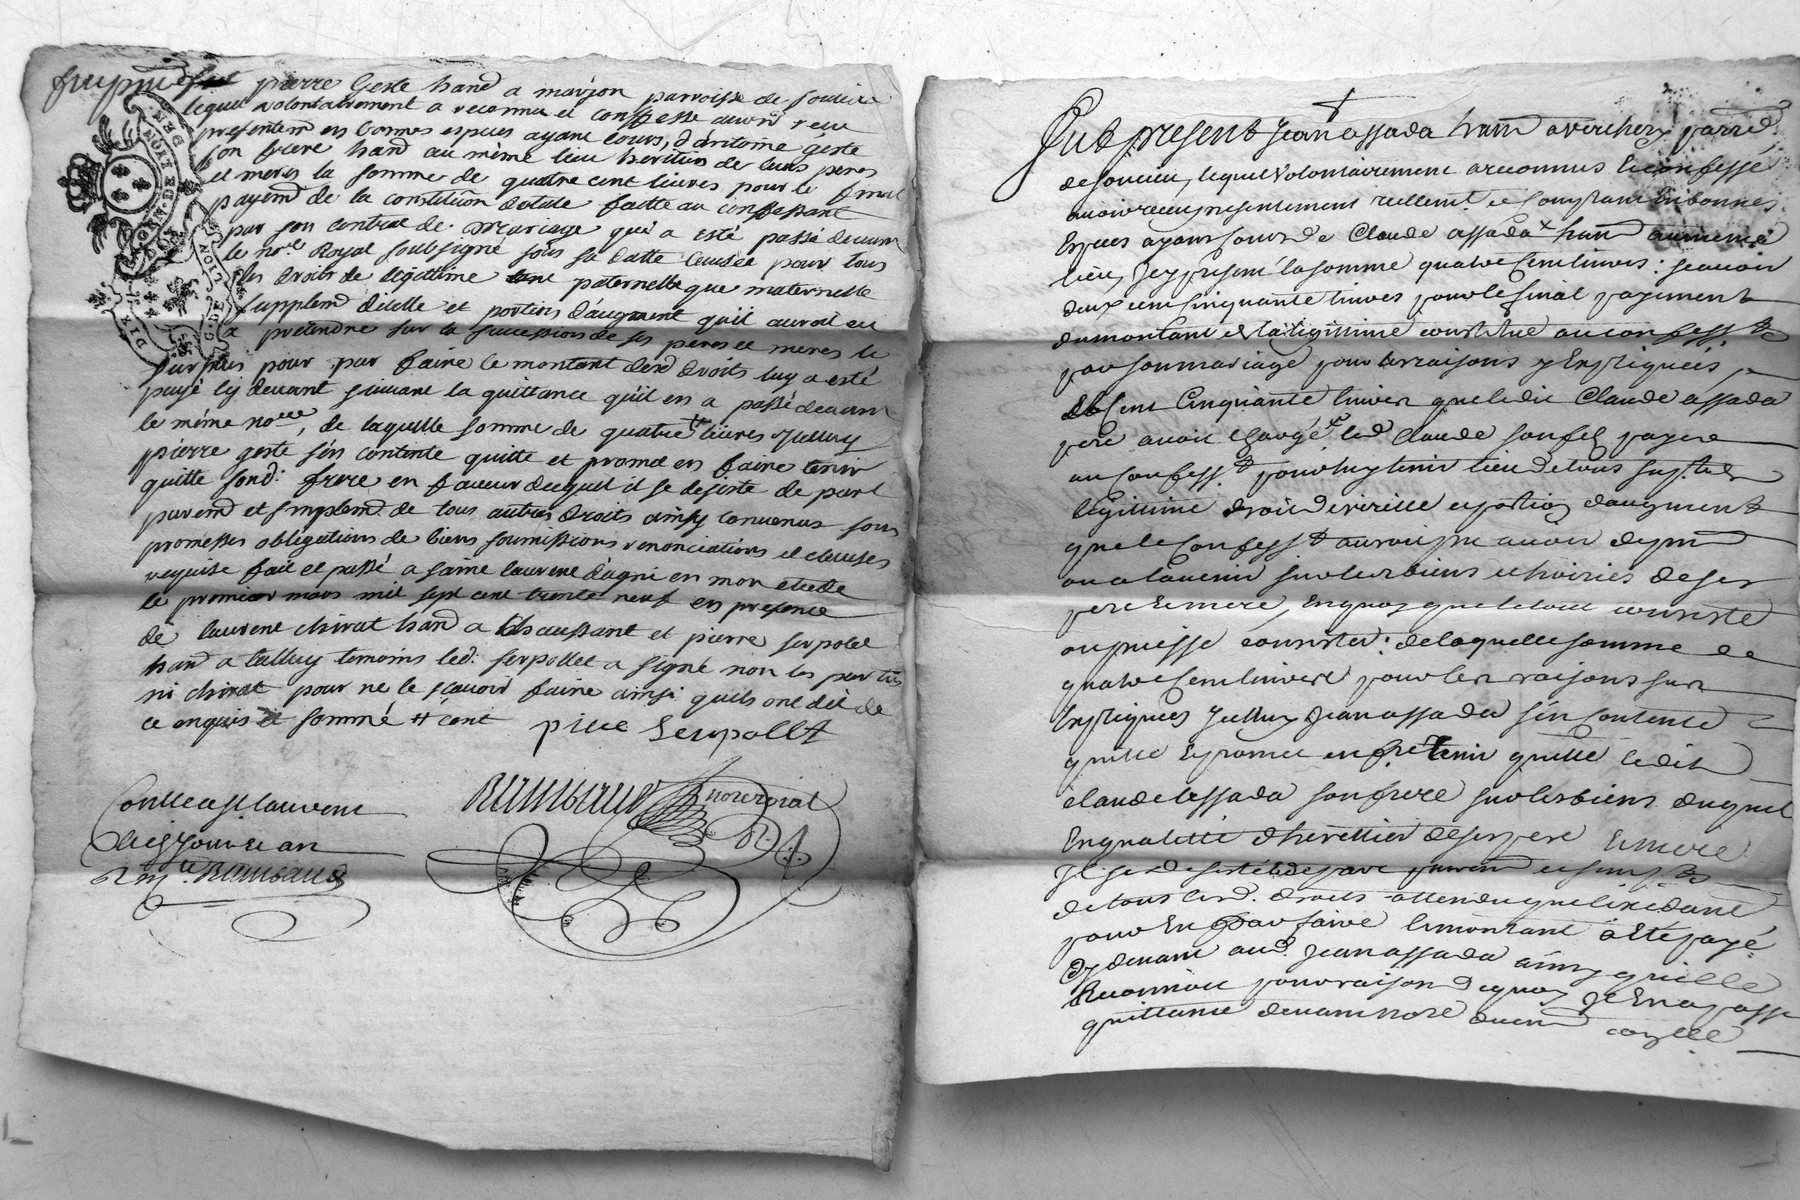 fut présent pierre Geste hand a marjon parroisse de soucieu
lequel volontairement a reconnu et confessé avoir reçu
présentem en bonnes especes ayant cours, d'antoine geste
son frere hand au même lieu heritier de leurs peres
et meres la somme de quatre cent livres pour le final
payem de la constitution dotale faitte au confessant
par son contrat de mariage qui a esté passé devant
le no.re Royal soubsigné sous sa datte causée pour tous
les droits de légittime paternelle que maternelle
supplem dicelle et portion d'augment qu'il auroit eu
a prétendre sur la succession de ses peres et meres le
surplus pour par faire le montant desd droits luy a esté
payé cy devant suivant la quittance qu'il en a passé devant
le même no.re, de laquelle somme de quatre # livres Icelluy
pierre geste s'en contente quitte et promet en faire tenir
quitte sond: frere en faveur duquel il se desiste de part
parem et simplem de tous autres droits ainsy convenus sous
promesses obligations de biens soumissions renonciations et clauses
requise fait et passé a saint laurent d'agni en mon etude
le premier mars mil sept cent trente neuf en presence
de laurent chirat hand a Chaussant et pierre serpolet
hand a talluy temoins led: serpollet a signé non les parties
ni chirat pour ne le sçavoir faire ainsi qu'ils ont dit de
ce enquis et sommé # cent
pierre Serpollet
Controllé a st laurent
les jour et an
Rambaud
Rambaud no.re royal
DEN
GEN. DE LYON
DIX
Fut présent Jean assada hand a verchery parr.e
de soucieu, lequel volontairement a reconnu et confessé
avoir receu presentement reellem.t et comptant en bonnes
Especes ayant cours de Claude assada x hand au meme
lieu, Icy présent la somme quatre Cent livres: scavoir
deux cent cinquante livres pour le final payement
du montant de la légittime constitué au confess.t
par son mariage pour les raisons y Expliquées
et Cent Cinquante livres que ledit Claude assada
pere avoit chargé led Claude son fils payer
au confess.t pour luy tenir lieu de tous suplt de
legittime droit de virille et portion d'augment
que le Confess.t auroit pu avoir de pnt
ou a l'avenir sur les biens et hoiries de ses
pere et mere, En quoy que le tout consiste
ou puisse consister: de laquelle somme de
quatre Cent livres pour les raisons sus
Expliquées Icelluy Jean assada s'en Contente
quitte et promet en fre tenir quitte ledit
Claude assada son frere sur les biens duquel
En qualitté d'herettier de ses pere et mere
Il se desisté de part parem et simp.t
de tous lesd. droits attendu que l'exedant
pour En parfaire le montant a Eté payé
Cy devant aud. Jean assada ainsy qu'il le
Reconnoit pour raison de quoy Il En a passé
quittance devant no.re